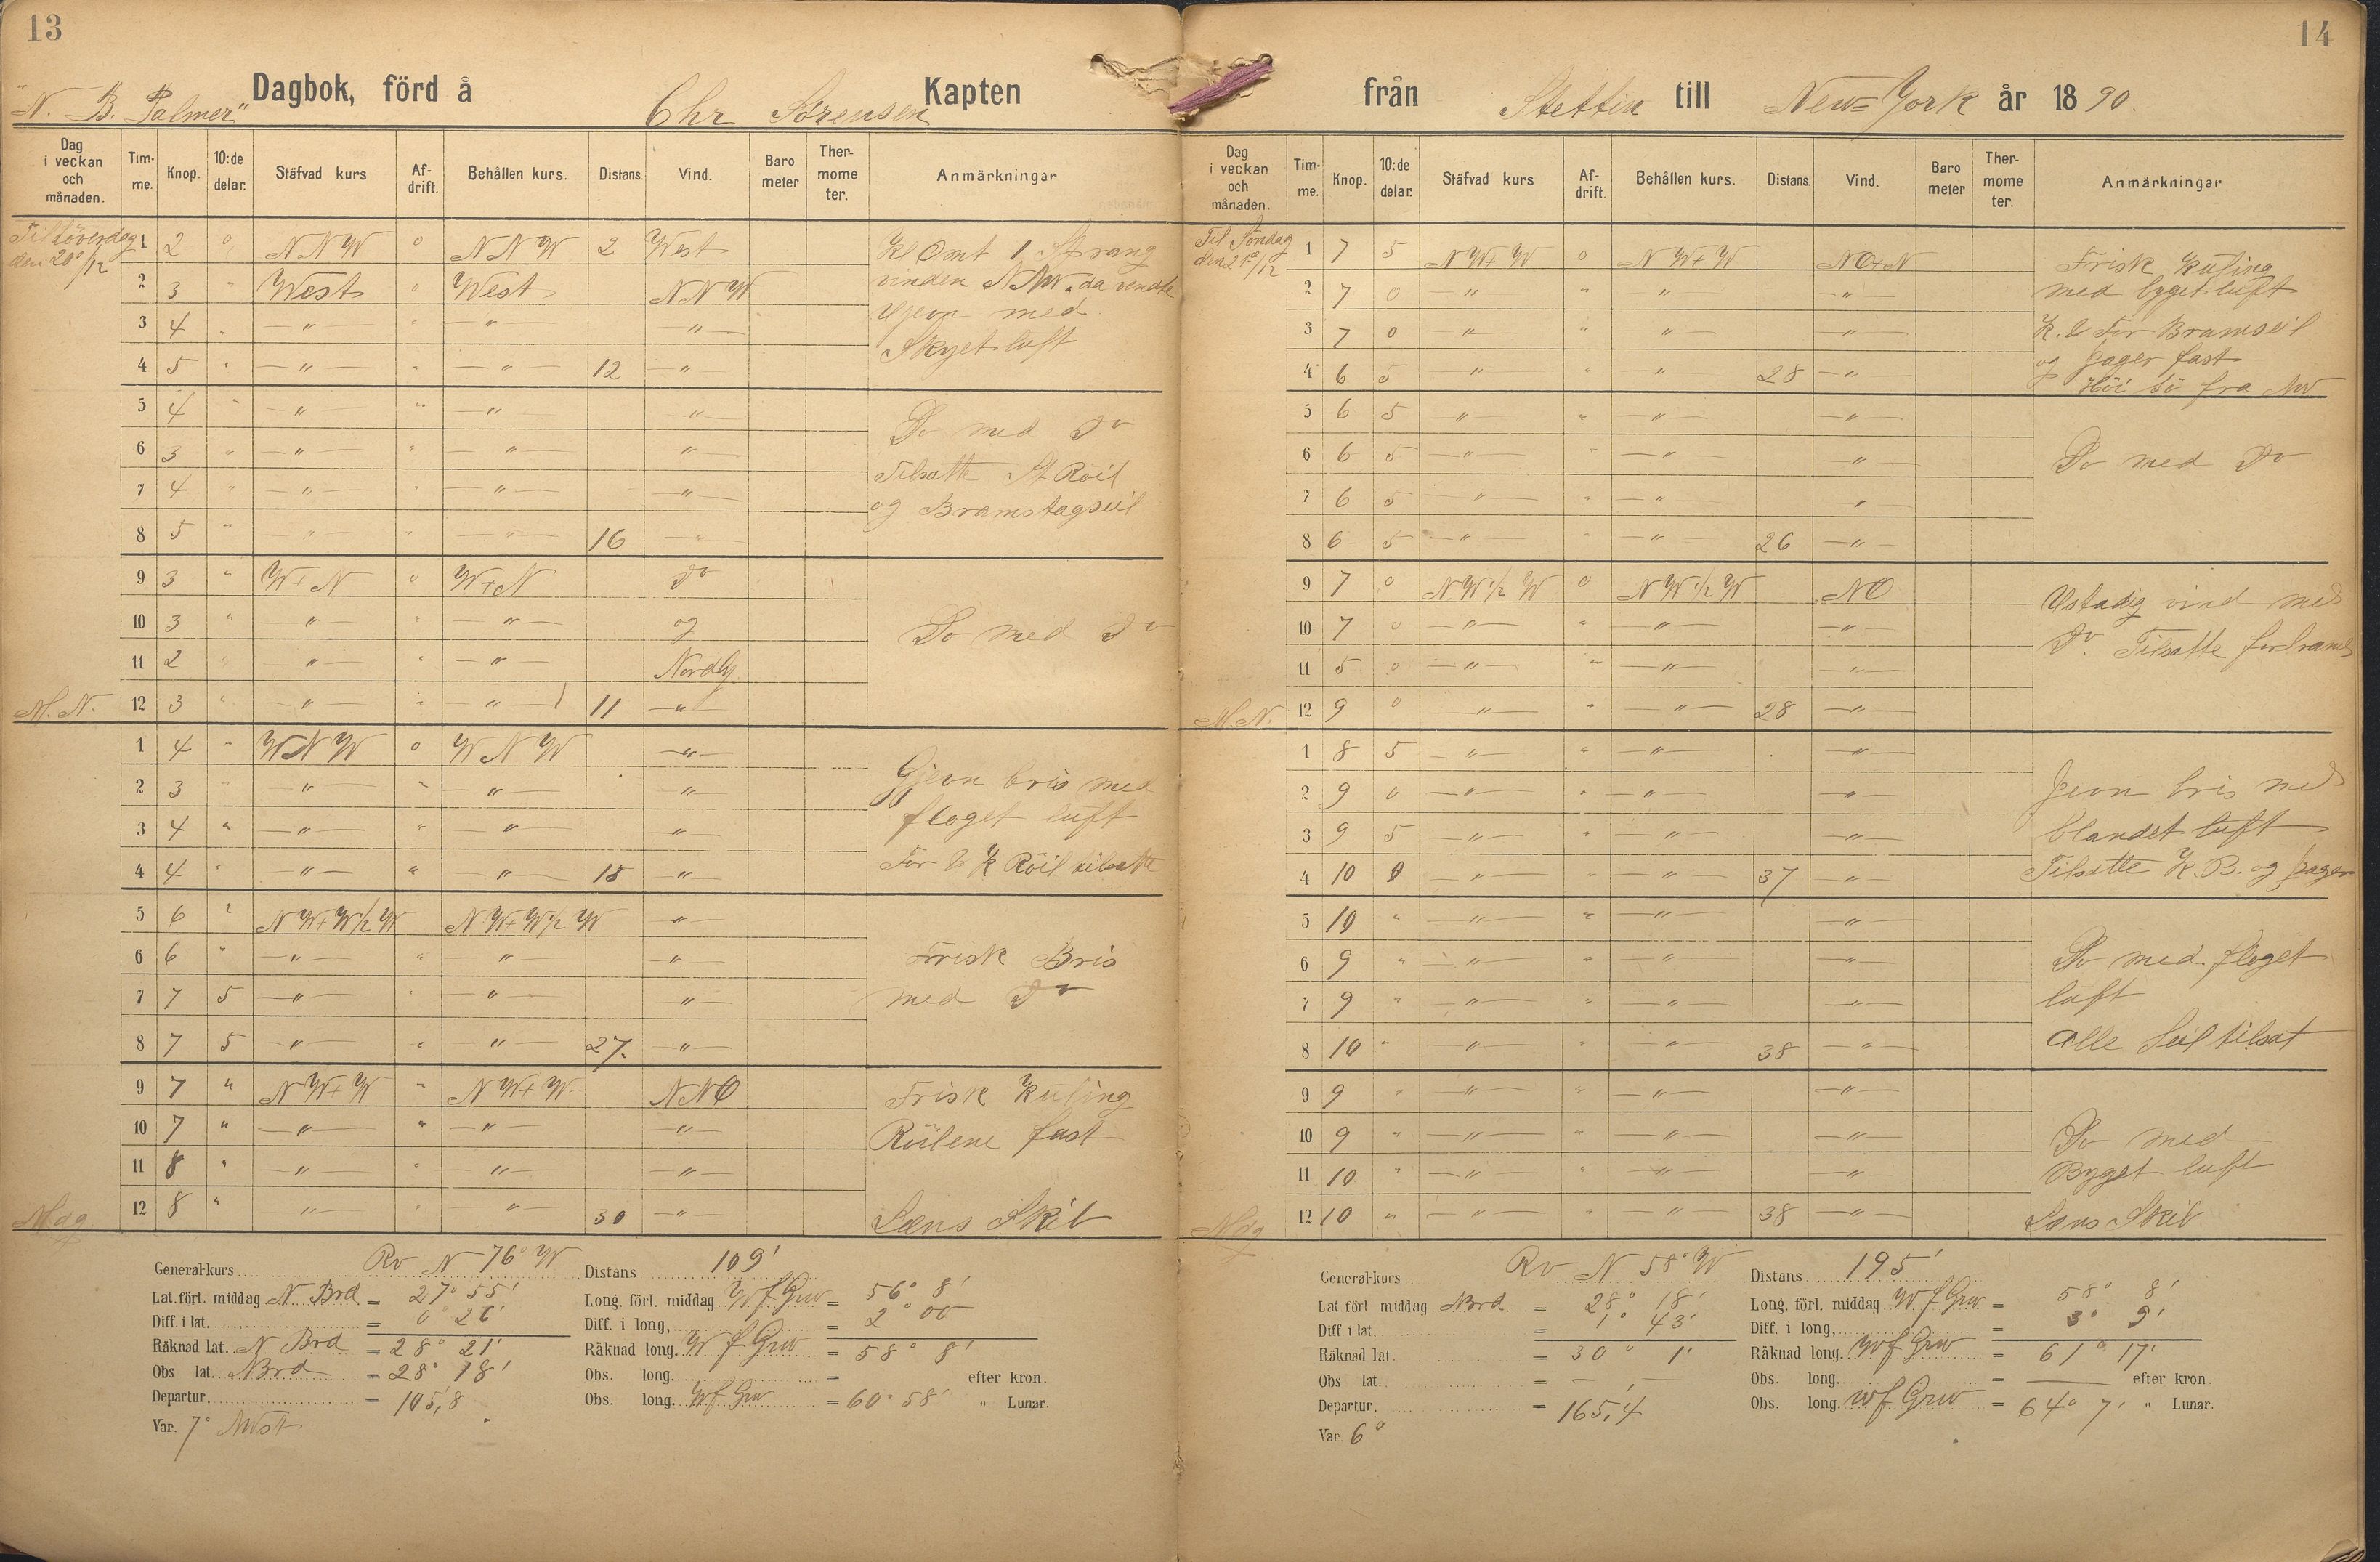 13
"N. B. Palmer" Dagbok, förd å Chr Sörensen Kapten
Dag i veckan och månaden. Tim-me. Knop. 10:de delar. Stäfvad kurs Af-drift. Behållen kurs. Distans. Vind. Baro meter Ther-mome ter. Anmärkningar
Til Löverdag den 20/12
1 2 0 NNW 0 NNW 2 West Kl Omt 1 Sprang
2 3 " West 0 West NNW vinden NNW. da vendte
3 4 " — " — " — " — " — Gjevn med
4 5 " — " — " — " — 12 — " — Skyet luft
5 4 " — " — " — " — " —
6 3 " — " — " — " — " — Do med Do
7 4 " — " — " — " — " — Tilsatte St Röil
8 5 " — " — " — " — 16 — " — og Bramstagseil
9 3 " W+N 0 W+N Do
10 3 " — " — " — " — og Do med Do
11 2 " — " — " — " — Nordlg.
M.N. 12 3 " — " — " — " — 11 — " —
1 4 " WNW 0 WNW — " —
2 3 " — " — " — " — " — Gjevn bris med
3 4 " — " — " — " — " — floget luft
4 4 " — " — " — " — 15 — " — For & K Röil tilsatte
5 6 " NW+W1/2W NW+W1/2W — " —
6 6 " — " — " — " — " — Frisk Bris
7 7 5 — " — " — " — " — med Do
8 7 5 — " — " — " — 27. — " —
9 7 " NW+W " NW+W NNO Frisk Kuling
10 7 " — " — " — " — " — Röilene fast
11 8 " — " — " — " — " —
Mdg 12 8 " — " — " — " — 30 — " — Læns Skib
General-kurs Rv N 76° W Distans 109'
Lat. förl. middag N Brd = 27° 55' Long. förl. middag W f Grw = 56° 8'
Diff. i lat. = 0° 26' Diff. i long, = 2° 00
Räknad lat. N Brd = 28° 21' Räknad long. W f Grw = 58° 8'
Obs lat. N Brd = 28° 18' Obs. long. = efter kron.
Departur. = 105,8 Obs. long. W f Grw = 60° 58' " Lunar.
Var. 7° NWst
14
från Stettin till New=York år 1890.
Dag i veckan och månaden. Tim-me. Knop. 10:de delar. Stäfvad kurs Af-drift. Behållen kurs. Distans. Vind. Baro meter Ther-mome ter. Anmärkningar
Til Söndag den 21/12
1 7 5 NW+W 0 NW+W NO+N Frisk Kuling
2 7 0 — " — " — " — " — med byget luft
3 7 0 — " — " — " — " — K. & For Bramseil
4 6 5 — " — " — " — 28 — " — og Jager fast
Höi Sö fra NW
5 6 5 — " — " — " — " —
6 6 5 — " — " — " — " — Do med Do
7 6 5 — " — " — " — "
8 6 5 — " — " — " — 26 — " —
9 7 0 NW1/2W 0 NW1/2W NO Ustadig vind med
10 7 0 — " — " — " — " — Do. Tilsatte forbrams
11 5 0 — " — " — " — " —
M.N. 12 9 0 — " — " — " — 28 — " —
1 8 5 — " — " — " — " —
2 9 0 — " — " — " — " — Jevn bris med
3 9 5 — " — " — " — " — blandet luft
4 10 0 — " — " — " — 37 — " — Tilsatte K. B. og Jager
5 10 " — " — " — " — " —
6 9 " — " — " — " — " — Do med floget
7 9 " — " — " — " — " — luft
8 10 " — " — " — " — 38 — " — Alle Seil tilsat
9 9 " — " — " — " — " —
10 9 " — " — " — " — " — Do med
11 10 " — " — " — " — " — Byget luft
Mdg 12 10 " — " — " — " — 38 — " — Læns Skib
General-kurs Rv N 58° W Distans 195'
Lat förl middag Nbrd = 28° 18' Long. förl. middag W. f Grw. = 58° 8'
Diff. i lat. = 1° 43' Diff. i long, = 3° 9'
Räknad lat. = 30° 1' Räknad long. W f Grw = 61° 17'
Obs lat. = — — Obs. long. = — efter kron.
Departur. = 165,4 Obs. long. W f Grw = 64° 7' " Lunar.
Var. 6°